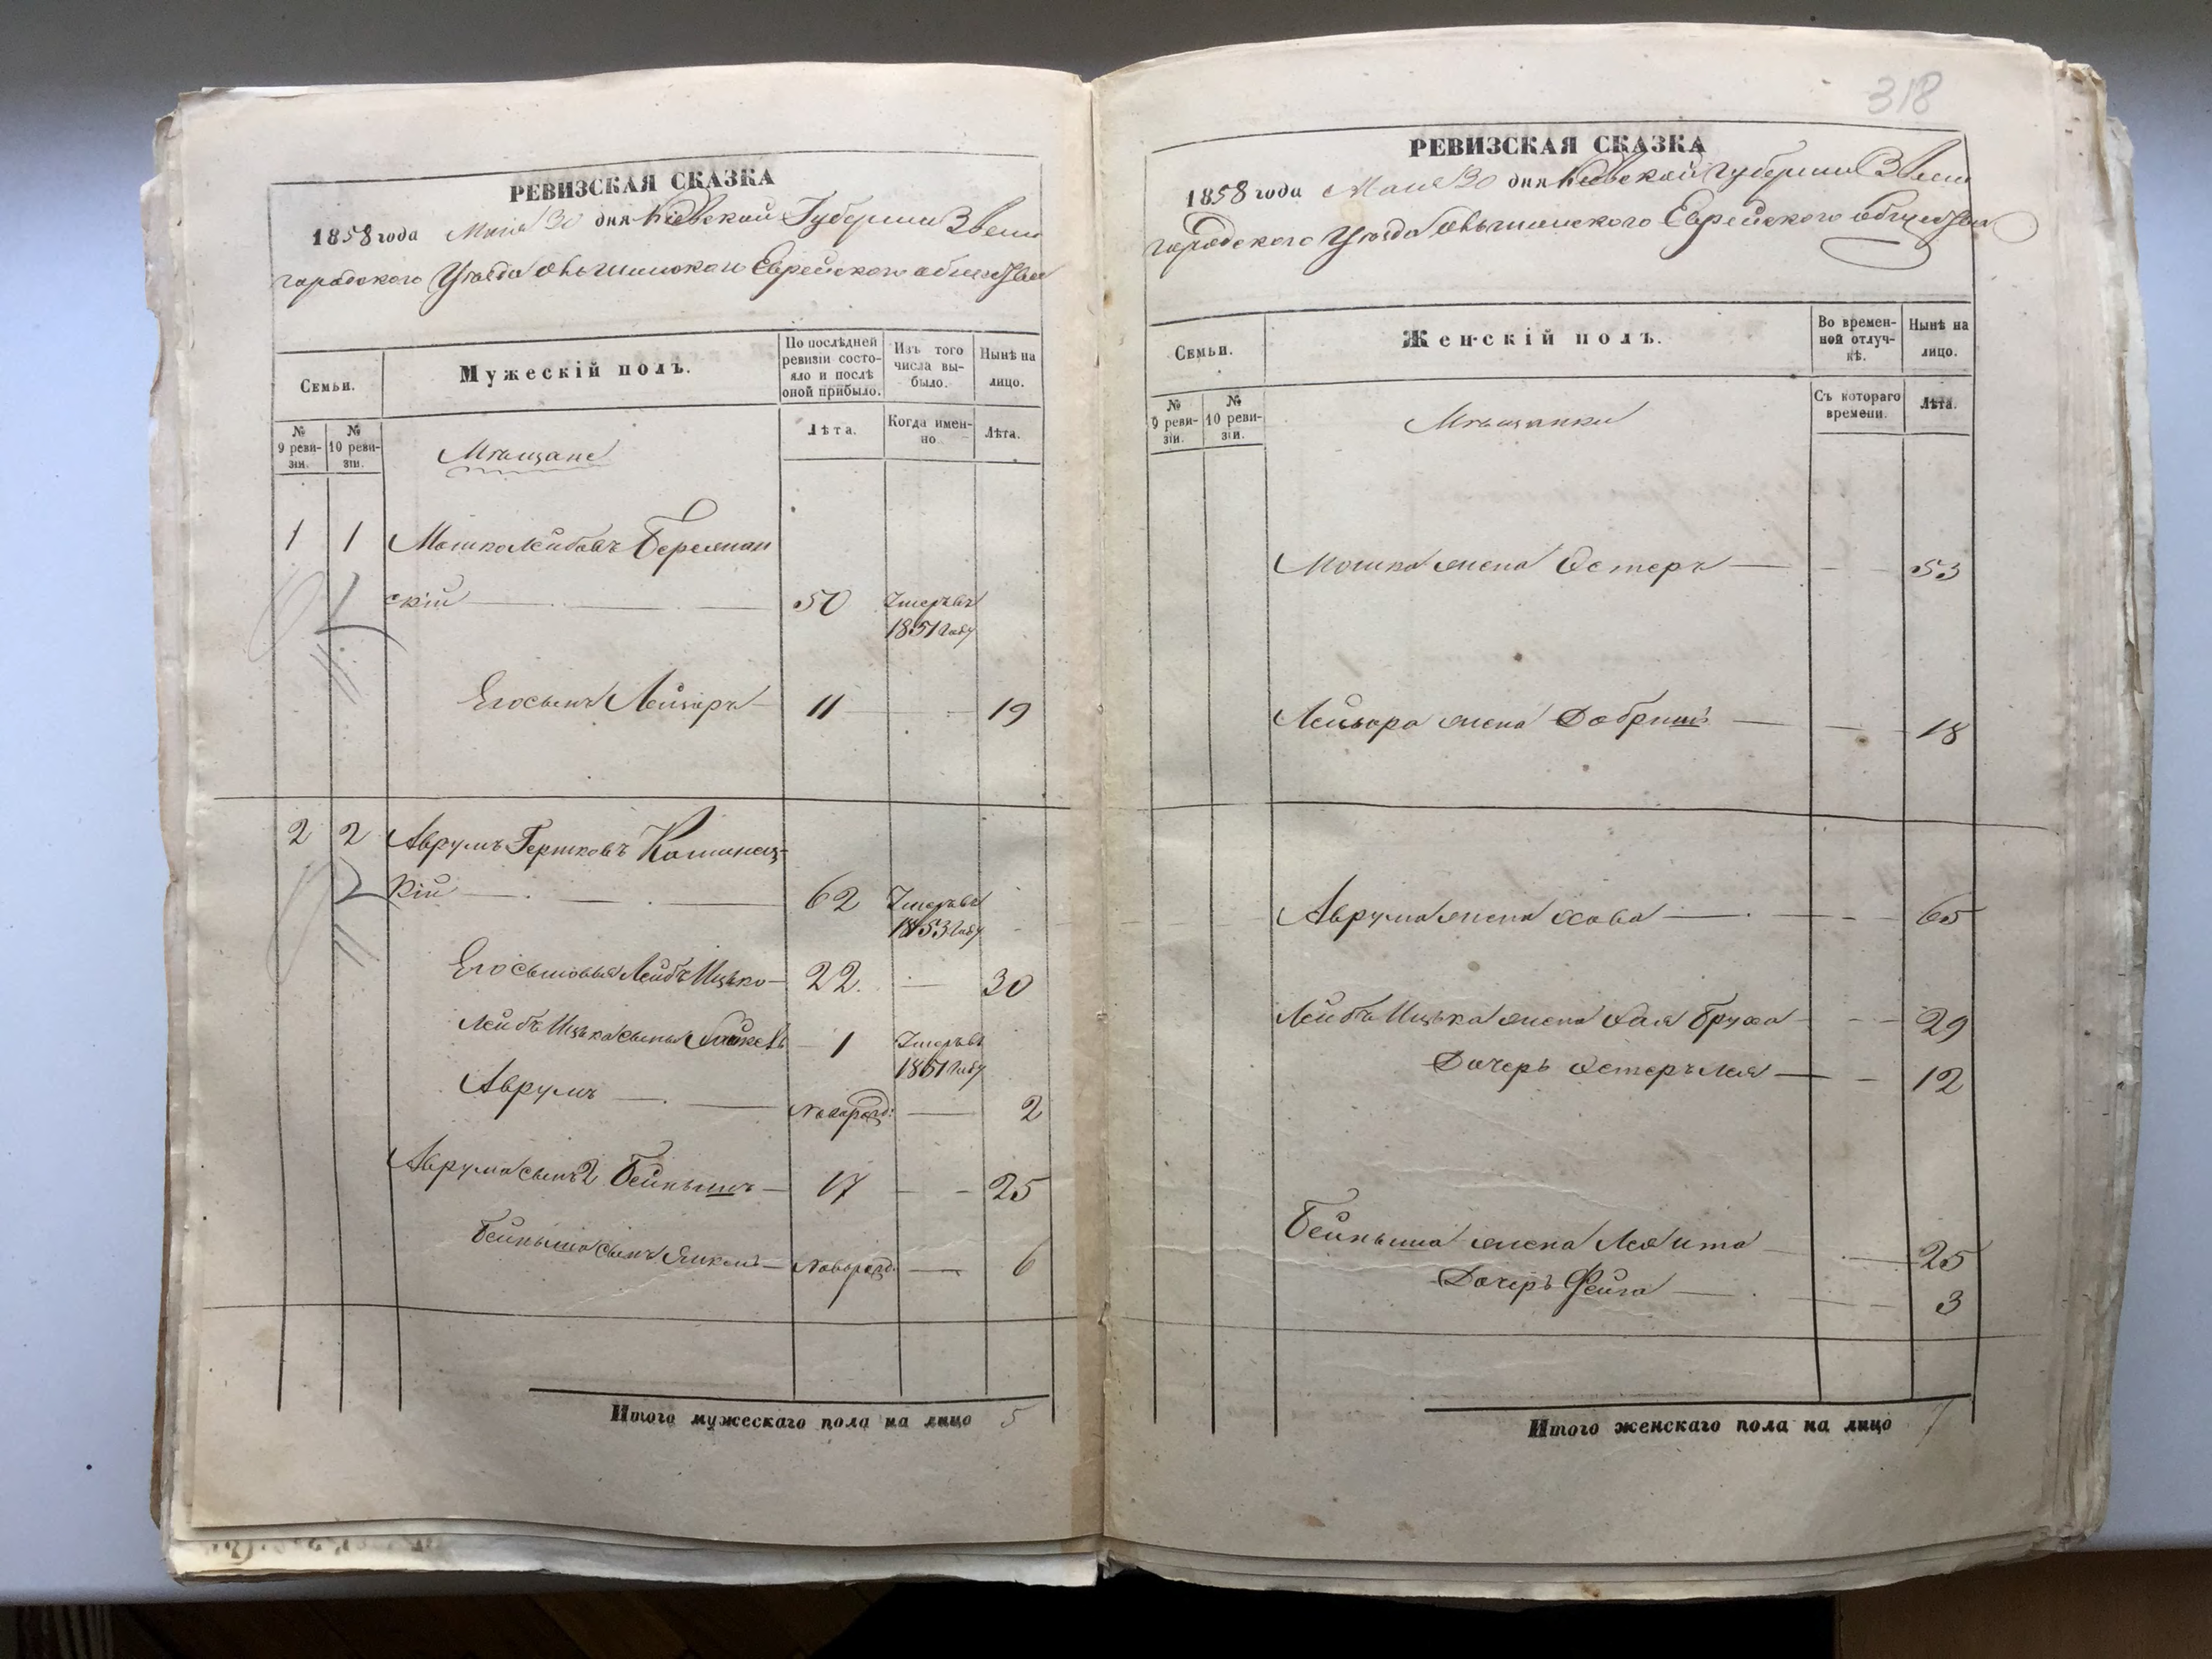 РЕВИЗСКАЯ СКАЗКА
1858 года Маія 30 дня Кіевской Губерніи Звени
городского Уѣзда Ольшанского Еврейского общества
Семьи.
Мужескій полъ.
По послѣдней ревизіи состояло и послѣ оной прибыло.
Изъ того числа выбыло.
Нынѣ на лицо.
№ 9 ревизіи.
№ 10 ревизіи.
Мѣщане
Лѣта.
Когда именно.
Лѣта.
1 1 Мошко Лейбовъ
скій 50 Умеръ въ
1851 году
Его сынъ Лейзоръ 11 19
2 2 Аврумъ Гершковъ Каминец-
кій 62 Умеръ въ
1853 году
Его сыновья Лейбъ Ицько 22. 30
Лейбъ Ицька сыны 1 Умеръ въ
1851 году
Аврумъ новорожд: 2
Аврума сынъ 2 Бейнышъ 17 25
Бейныша сынъ Янкель новорожд. 6
Итого мужескаго пола на лицо 5
318
РЕВИЗСКАЯ СКАЗКА
1858 года Маія 30 дня Кіевской Губерніи Звени
городского Уѣзда Ольшанского Еврейского общества
Семьи.
Женскій полъ.
Во временной отлучкѣ.
Нынѣ на лицо.
№ 9 ревизіи.
№ 10 ревизіи.
Мѣщанки
Съ котораго времени.
Лѣта.
Мошка жена Эстеръ 53
Лейзора жена Добришъ 18
Аврума жена Хава 65
Лейбъ Ицька жена Хая Бруха 29
Дочерь Эстеръ Лея 12
Бейныша жена Лея Ита 25
Дочерь Фейга 3
Итого женскаго пола на лицо 7